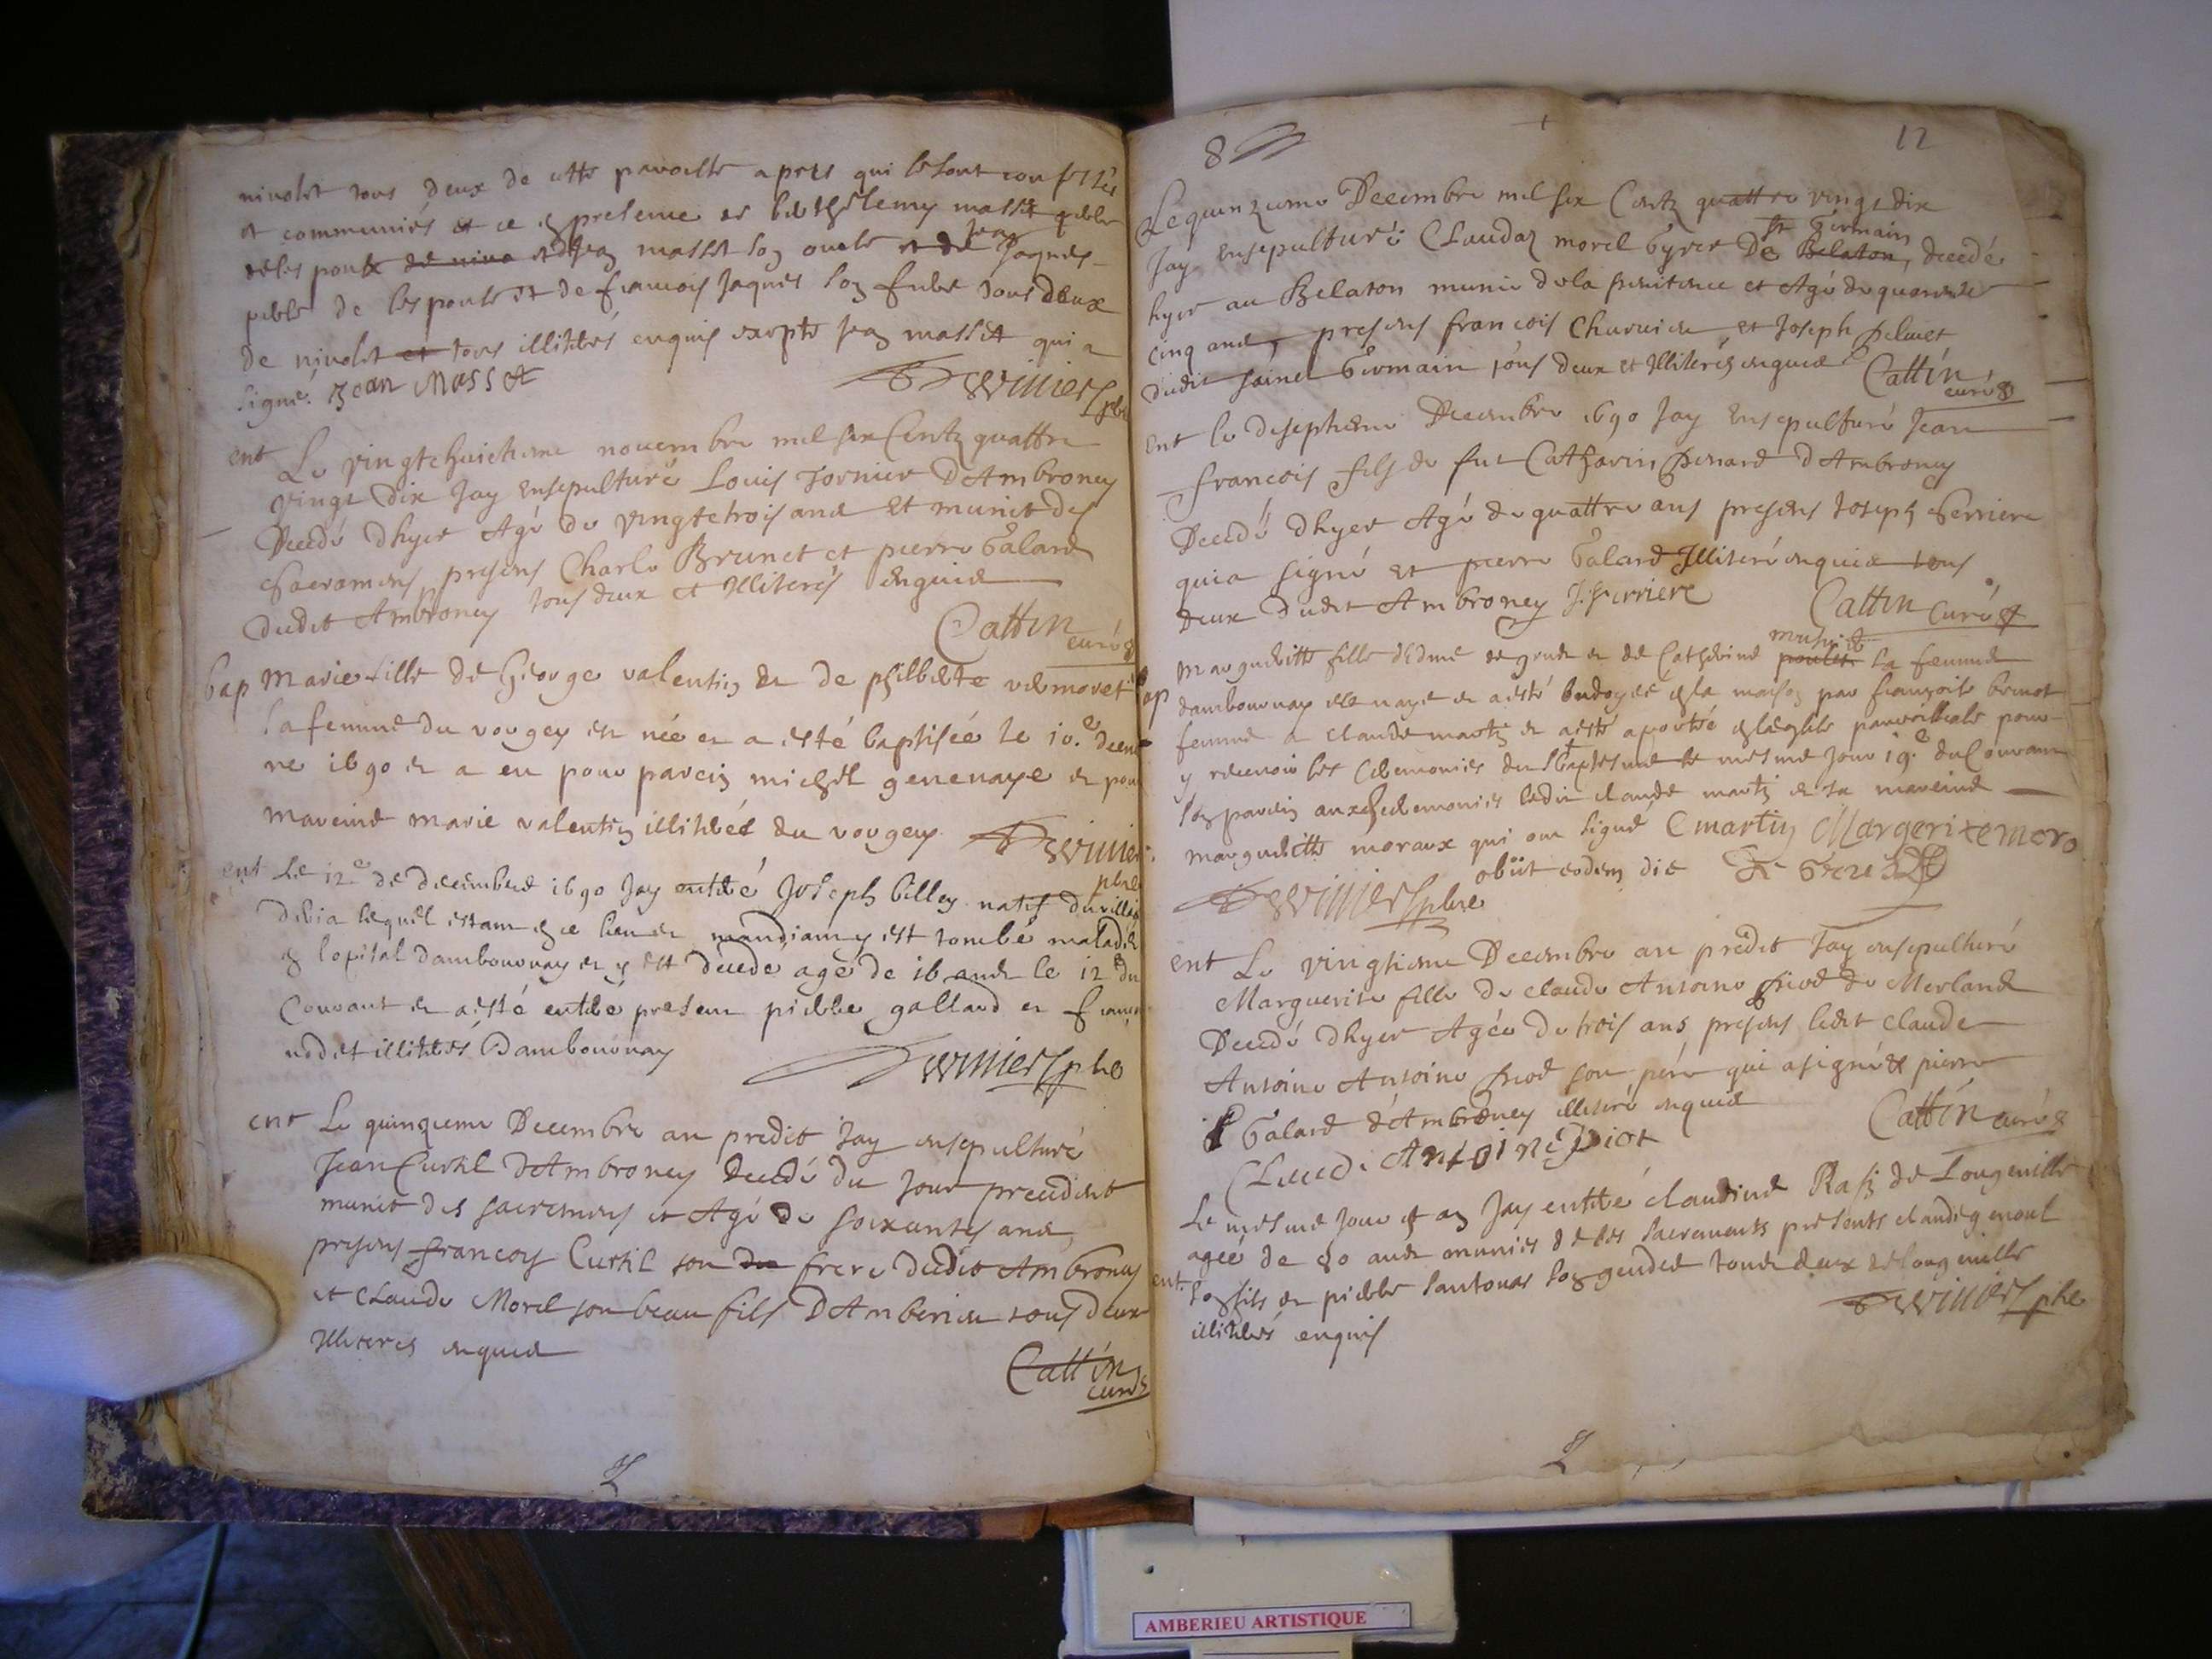 nivolet tous deux de cette paroisse apres qui se sont confessés
et communiés et ce en presence de berthelemy masset pere
de les pouse de nivo et jean masset son oncle et de jean Jaques
pere de lespouse et de francois Jaques son frere tous deux
de nivolet et tous illiterés enquis exepte jean masset qui a
signé. Jean Masset
Winier pbre
ent Le vingtehuictieme novembre mil six Centz quattre
vingt dix Jay ensepulturé Louis Tornier D'Ambroney
Decedé dhyer Agé de vingtetrois ans Et munit des
Sacramens presens Charle Brunet et pierre Galard
dudit Ambroney tous deux et Illiterés enquis
Cattin curé
bap Marie fille de George valentin et de philberte vermoret
sa femme du vougey est née et a esté baptisée le 10.e decem
re 1690 et a eu pour parein michel genenaye et pour
mareine marie valentin illiterée du vougey. Winier
pbre
ent Le 12.e de decembre 1690 Jay enterré Joseph billey natif du
lequel estant en ce lieu et mandiant y est tombé malade
a lopital dambournay et y est decedé agé de 16 ans le 12 du
Courant et a esté enterré present pierre galland et
nodet illiterés Dambournay
Winier pbre
ent Le quinzieme Decembre an predit Jay ensepulturé
Jean Curtil D'Ambroney decedé du Jour precedent
munit des sacremens et Agé de soixante ans
presens Francoy Curtil son frere dudit Ambroney
et Claude Morel son beau fils D'Amberieu tous deux
Illiterés enquis
Cattin
curé
8 12
Le quinzieme Decembre mil six Centz quattre vingt dix
Jay ensepulturé Claudaz morel Gyrer De Belaton, st Germain decedé
hyer au Belaton munie de la penitence et Agé de quarante
cinq ans, presens francois Charvieu et Joseph pelluet
dudit sainct Germain tous deux et Illiterés enquis Cattin
curé
ent le diseptieme Decembre 1690 Jay Ensepulturé Jean
francois fils de feu Catharin penard d'Ambroney
Decedé dhyer Agé de quattre ans presens Joseph Ferriere
qui a signé et pierre Galard Illiteré enquis tous
deux dudit Ambroney J. Ferriere Cattin Curé
bap Marguerite fille d'Edme et de Catherine poulet sa femme
dambournay elle naye et a esté ondoyée en la maison par françoise brunet
femme a claude martin et a esté aportée en leglise parroissiale pour
y recevoir les Ceremonies du St Baptesme le mesme jour 19.e du Courant
son parein aux Ceremonies ledit claude martin et sa mareine
marguerite moraux qui ont signé C martin Margerite moro
obiit eodem die
Winier pbre
ent Le vingtieme Decembre an predit Jay ensepulturé
Marguerite fille de claude Antoine priod de Merland
Decedé dhyer Agée de trois ans presens ledit claude
Antoine Antoine priod son pére qui a signé et pierre
Galard d'Ambroney illiteré enquis Cattin curé
Claude Antoine Piot
Le mesme Jour et an Jay enterré claudine de Longeville
agée de 80 ans munies de ses sacrements presents claude genoul
ent. son fils et pierre santonas son gendre tous deux de longeville
illiterés enquis
Winier pbre
AMBERIEU ARTISTIQUE